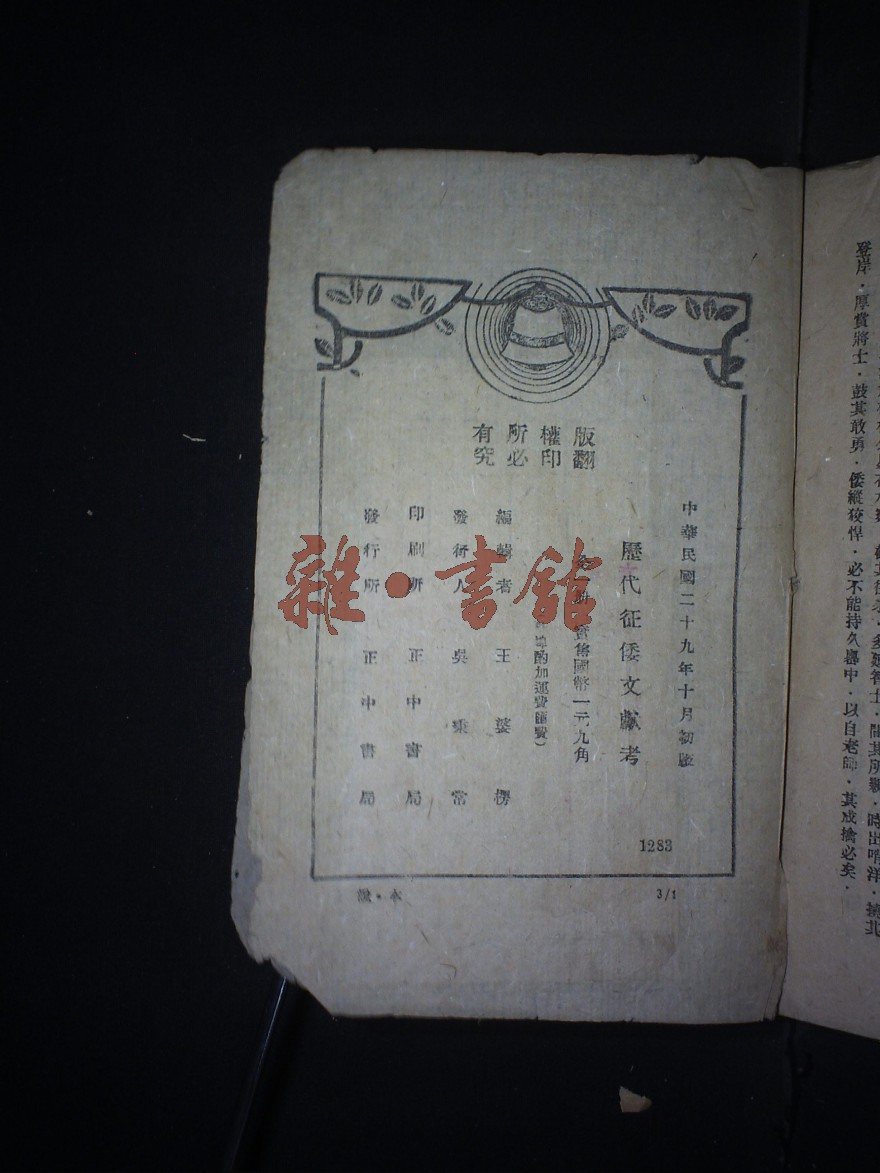 登岸·厚賞將士·鼓其敢勇·倭縱狡悍·必不能持久嶴中·以自老師·其成擒必矣·
中華民國二十九年十月初版
歷代征倭文獻考
實售國幣一元九角
酌加運費匯費）
編輯者 王婆楞
發行人 吳秉常
印刷所 正中書局
發行所 正中書局
版權所有
翻印必究
1283
3/1
雜·書館